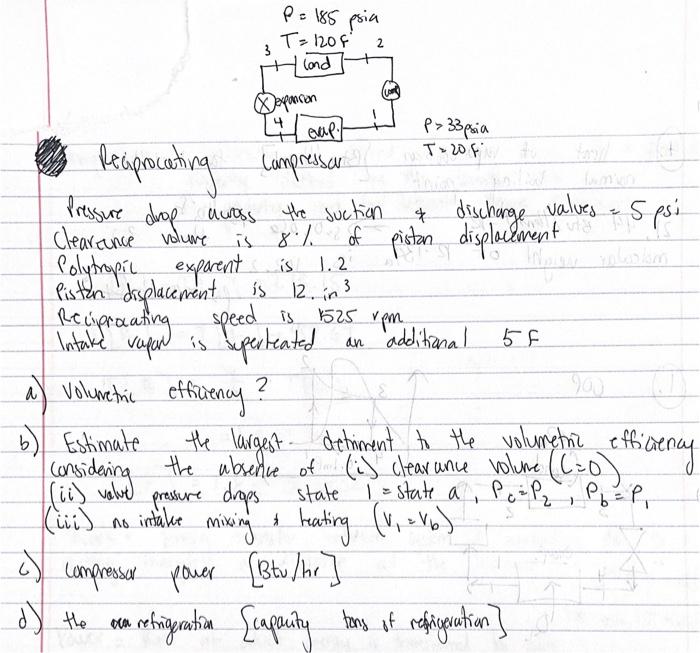 P = 185 psia
T = 120 F
3
2
Cond
expansion
comp
4
evap.
1
P > 33 psia
T = 20 F.
Reciprocating Compressor
Pressure drop across the suction & discharge valves = 5 psi
Clearance volume is 8% of piston displacement
Polytropic exponent is 1.2
Piston displacement is 12. in³
Reciprocating speed is 1525 rpm
Intake vapor is superheated an additional 5 F
a) Volumetric efficiency?
b) Estimate the largest detriment to the volumetric efficiency
considering the absence of (i) clearance volume (C=0)
(ii) valve pressure drops state 1 = state a, Pc = P2, Pb = P1
(iii) no intake mixing & heating (V1 = Vb)
c) compressor power [Btu/hr]
d) the refrigeration [capacity tons of refrigeration]